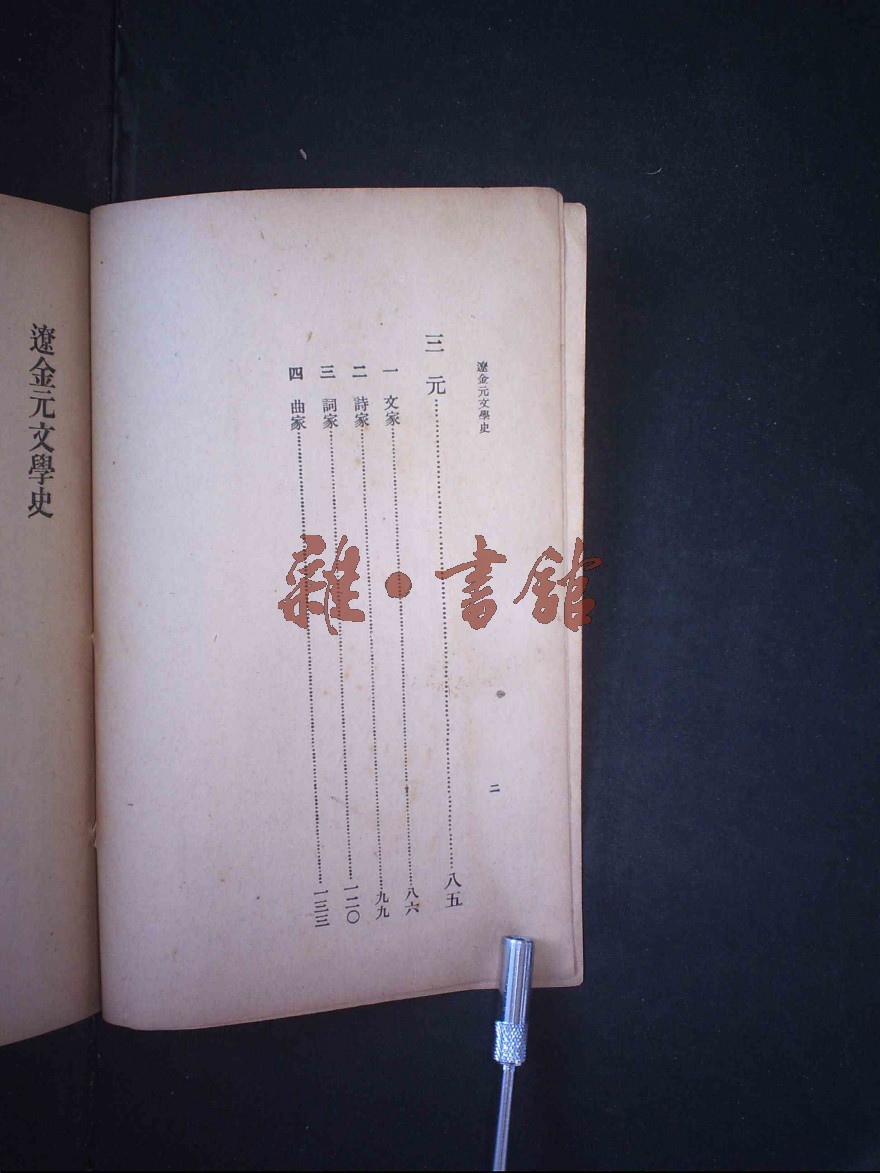 遼金元文學史
二
三 元 八五
一 文家 八六
二 詩家 九九
三 詞家 一二〇
四 曲家 一三三
遼金元文學史
雜·書館